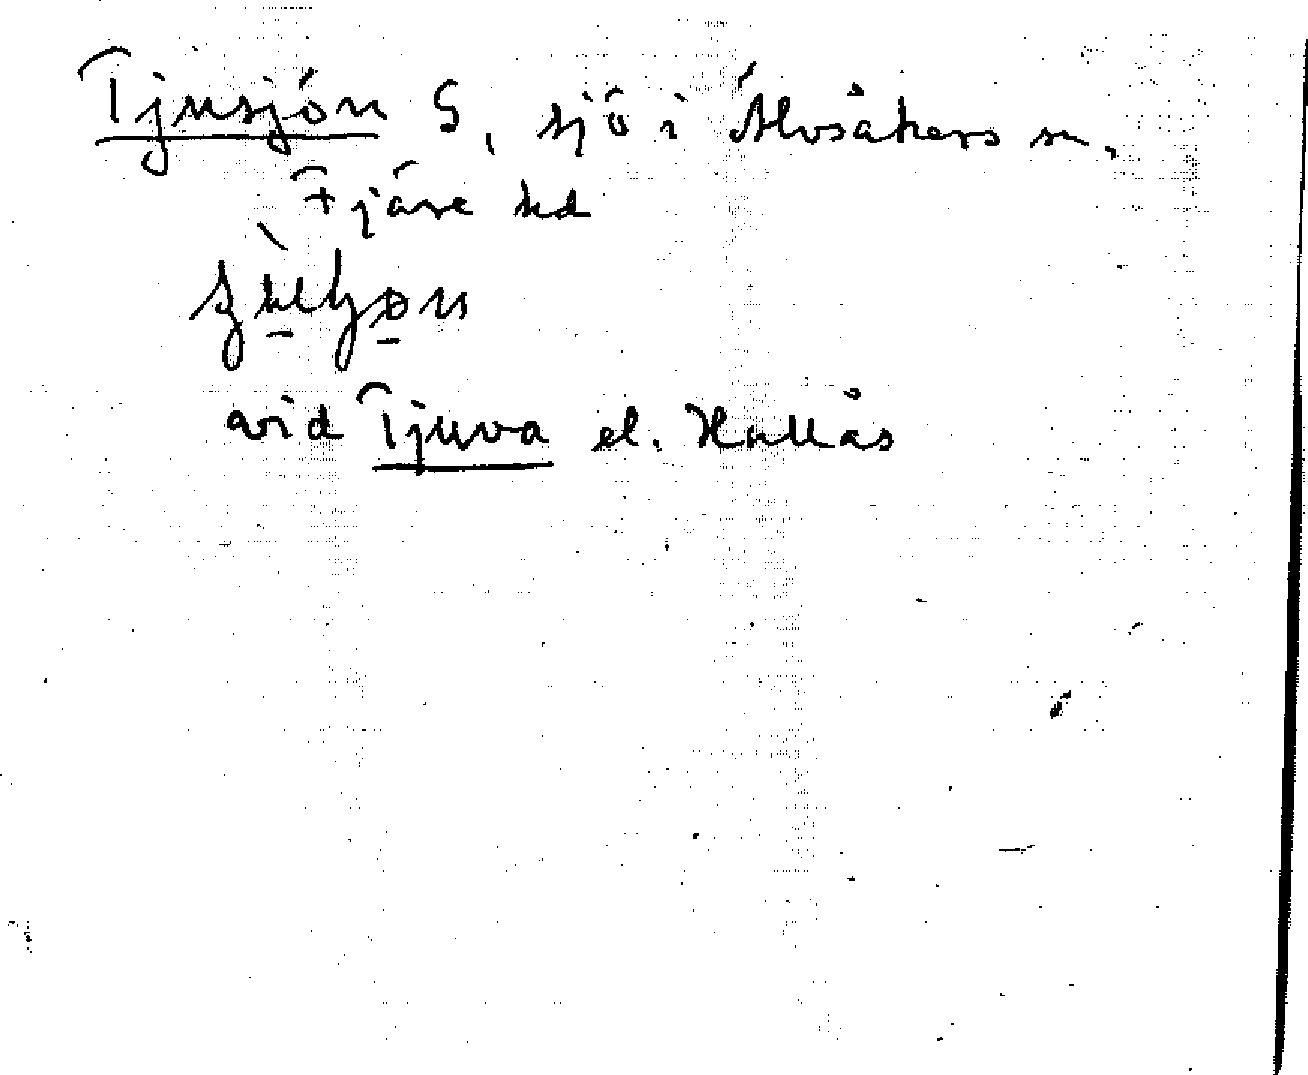 Tjusjön S, sjö i Älvsåkers sn,
Fjäre hd
vid Tjuva el. Hallås